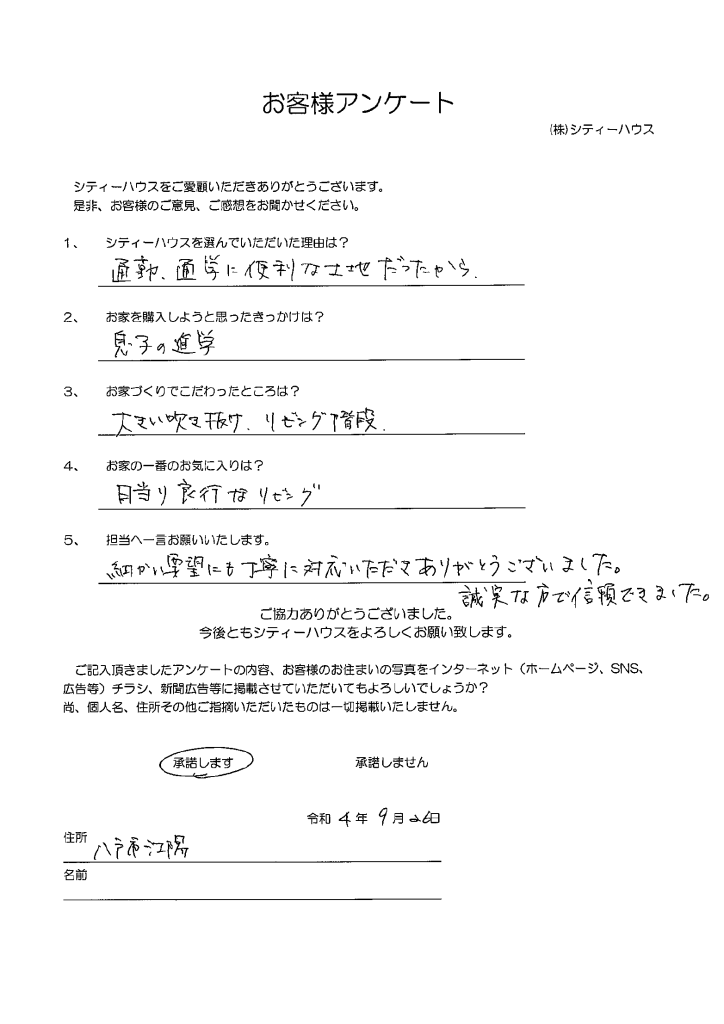 お客様アンケート
(株)シティーハウス
シティーハウスをご愛顧いただきありがとうございます。
是非、お客様のご意見、ご感想をお聞かせください。
1、 シティーハウスを選んでいただいた理由は？
通勤、通学に便利な土地だったから.
2、 お家を購入しようと思ったきっかけは？
息子の進学
3、 お家づくりでこだわったところは？
大きい吹き抜け、リビング階段.
4、 お家の一番のお気に入りは？
日当り良行なリビング
5、 担当へ一言お願いいたします。
細かい要望にも丁寧に対応いただきありがとうございました。
誠実な方で信頼できました。
ご協力ありがとうございました。
今後ともシティーハウスをよろしくお願い致します。
ご記入頂きましたアンケートの内容、お客様のお住まいの写真をインターネット（ホームページ、SNS、
広告等）チラシ、新聞広告等に掲載させていただいてもよろしいでしょうか？
尚、個人名、住所その他ご指摘いただいたものは一切掲載いたしません。
承諾します 承諾しません
令和 4 年 9 月 26日
住所 八戸市江陽
名前